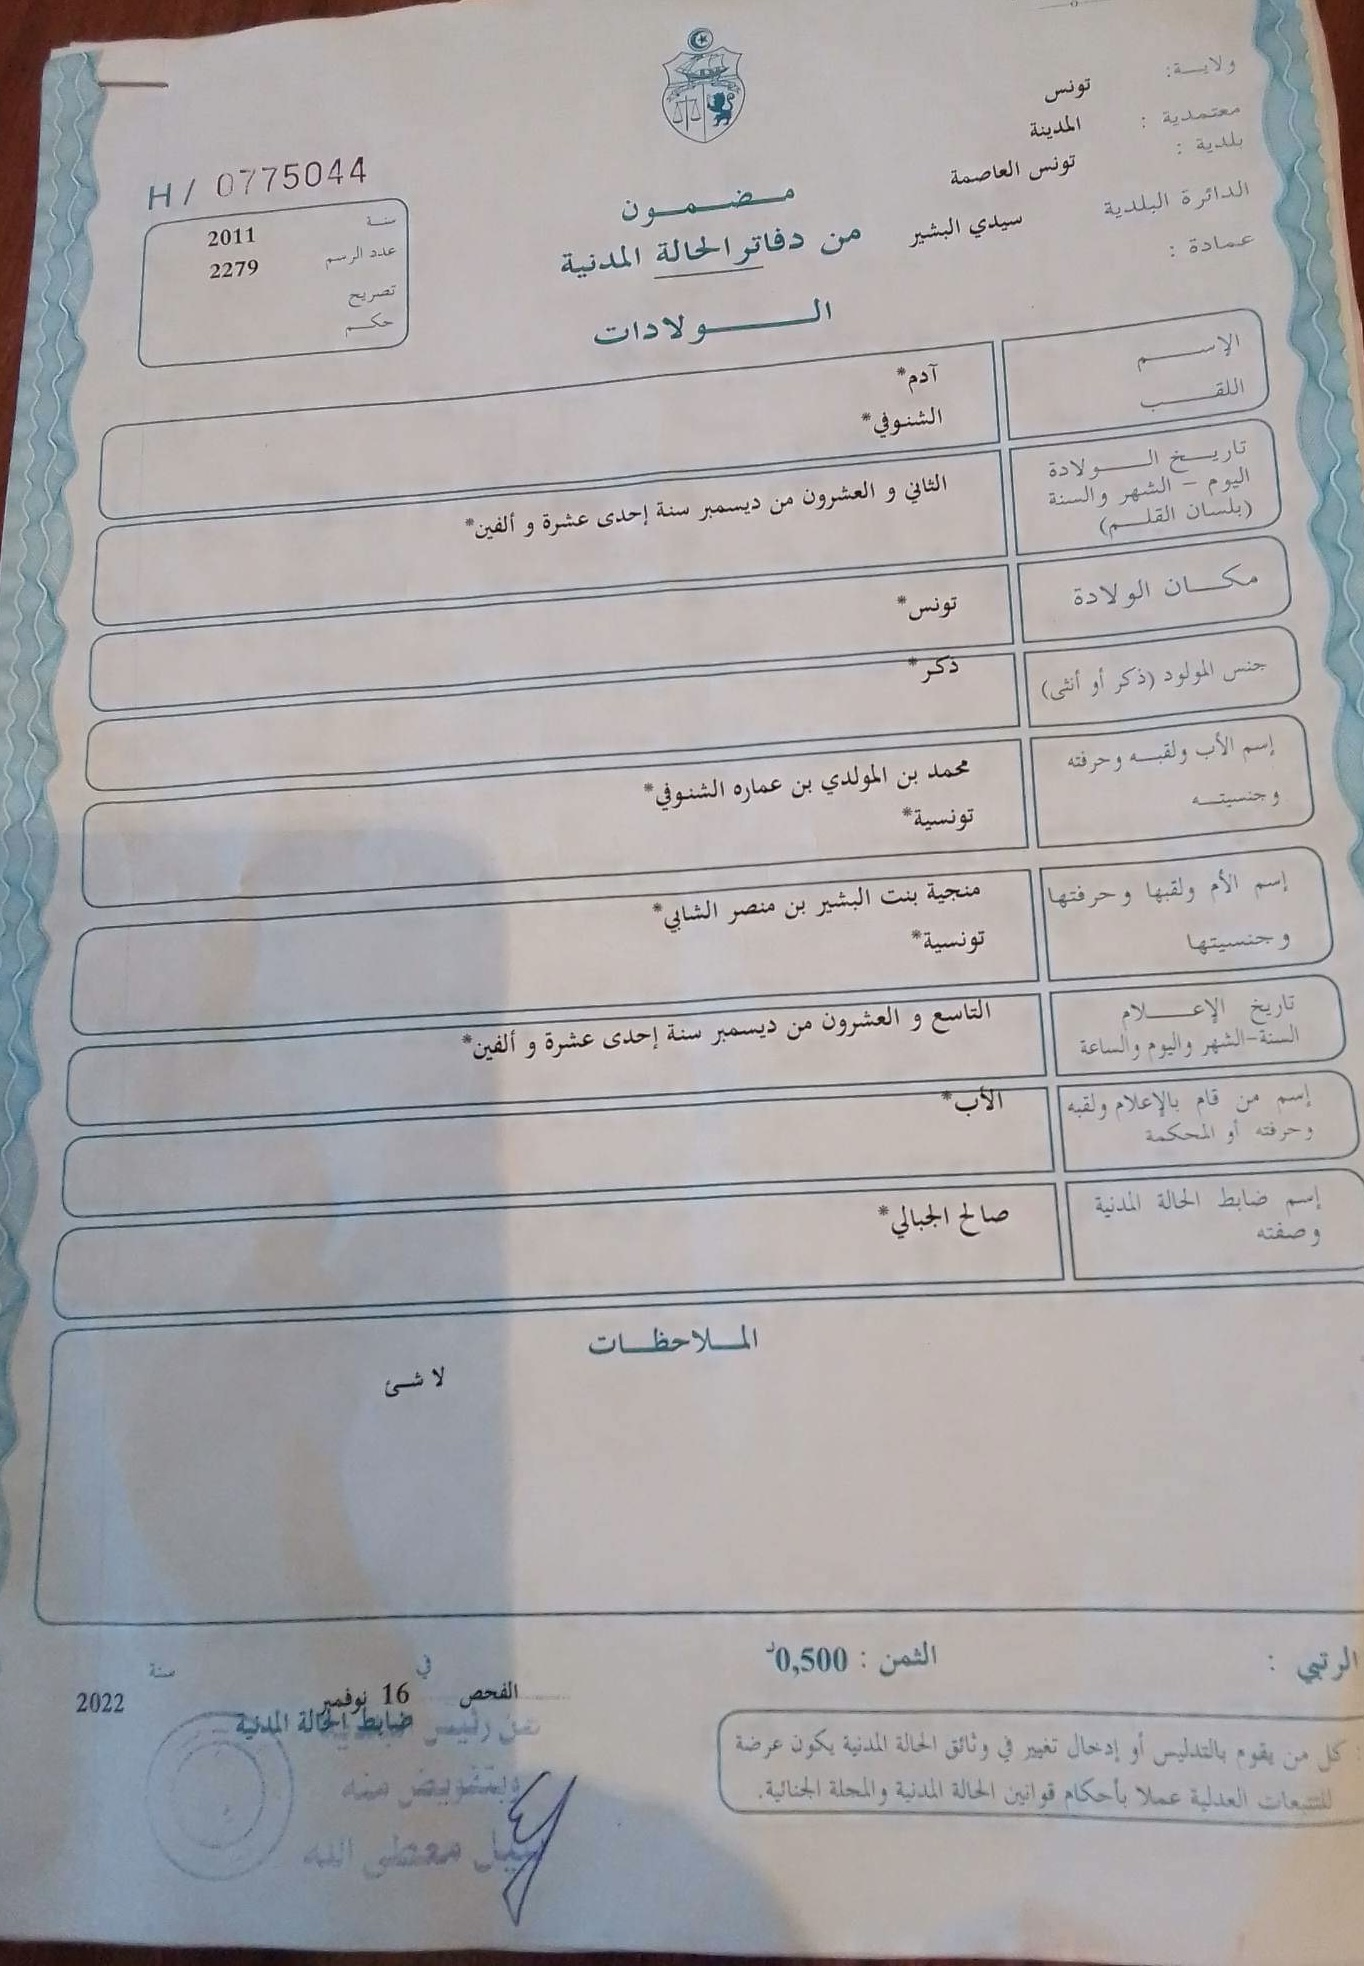 ولاية: تونس
معتمدية : المدينة
بلدية : تونس العاصمة
الدائرة البلدية سيدي البشير
عمادة :
H / 0775044
سنة 2011
عدد الرسم 2279
تصريح
حكم
مضمون
من دفاتر الحالة المدنية
الولادات
الإسم آدم*
اللقب الشنوفي*
تاريخ الولادة
اليوم - الشهر والسنة
(بلسان القلم)
الثاني و العشرون من ديسمبر سنة إحدى عشرة و ألفين*
مكان الولادة تونس*
جنس المولود (ذكر أو أنثى) ذكر*
إسم الأب ولقبه وحرفته
وجنسيته
محمد بن المولدي بن عماره الشنوفي*
تونسية*
إسم الأم ولقبها وحرفتها
وجنسيتها
منجية بنت البشير بن منصر الشابي*
تونسية*
تاريخ الإعلام
السنة-الشهر واليوم والساعة
التاسع و العشرون من ديسمبر سنة إحدى عشرة و ألفين*
إسم من قام بالإعلام ولقبه
وحرفته أو المحكمة
الأب*
إسم ضابط الحالة المدنية
وصفته
صالح الجبالي*
الملاحظات
لا شئ
الرتبي :
الثمن : 0,500د
الفحص في 16 نوفمبر سنة 2022
ضابط الحالة المدنية
عن رئيس
وبتفويض منه
معطى الله
كل من يقوم بالتدليس أو إدخال تغيير في وثائق الحالة المدنية يكون عرضة
للتتبعات العدلية عملا بأحكام قوانين الحالة المدنية والمجلة الجنائية.